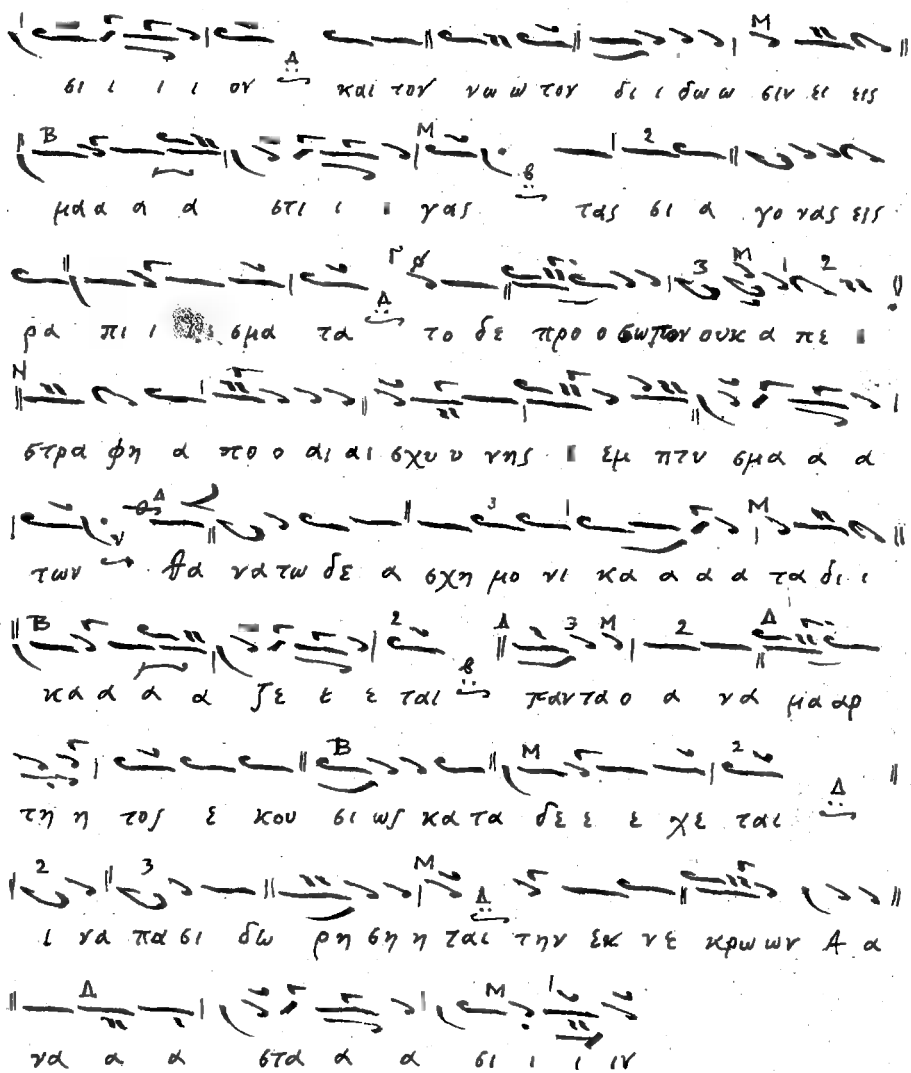 σι ι ι ι ον και τον νω ω τον δι ι δω ω σιν ει εις
μα α α α στι ι ι γας τας σι α γο νας εις
ρα πι ι σμα τα το δε προ ο σωπον ουκ α πε
στρα φη α πο ο αι αι σχυ υ νης εμ πτυ σμα α α
των θα να τω δε α σχη μο νι κα α α α τα δι ι
κα α α α ζε ε ε ται παντα ο α να μα αρ
τη η τος ε κου σι ως κα τα δε ε ε χε ται
ι να πα σι δω ρη ση η ται την εκ νε κρω ων Α α
να α α στα α α σι ι ι ιν